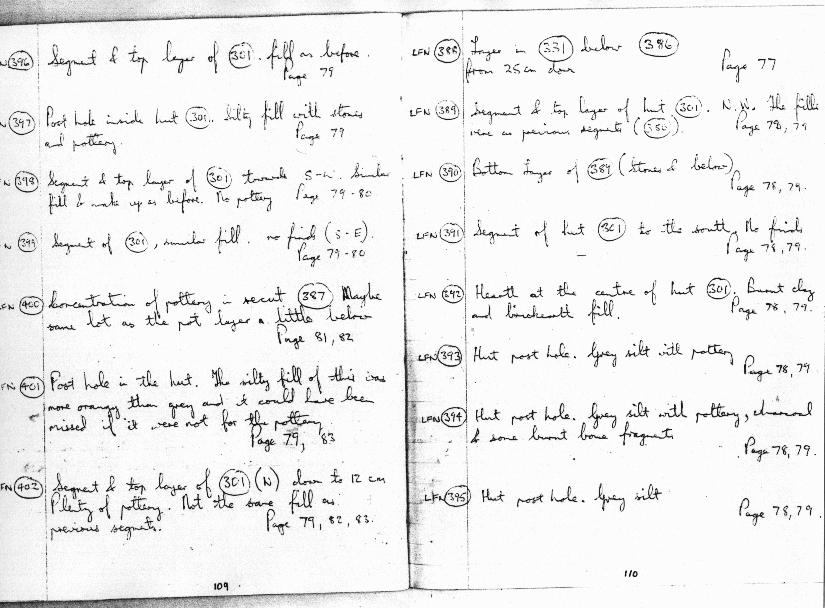 N 396 Segment & top layer of 301. fill as before.
Page 79
N 397 Post hole inside hut 301. Silty fill with stones
and pottery. Page 79
FN 398 Segment & top layer of 301 towards S-W. Similar
fill & make up as before. No pottery Page 79-80
FN 399 Segment of 301, similar fill. no finds (S-E).
Page 79-80
FN 400 Concentration of pottery in recut 387 Maybe
same lot as the pot layer a little below
Page 81, 82
FN 401 Post hole in the hut. The silty fill of this was
more orangy than grey and it could have been
missed if it were not for the pottery
Page 79, 83
FN 402 Segment & top layer of 301 (N) down to 12 cm
Plenty of pottery. Not the same fill as
previous segments. Page 79, 82, 83.
109
LFN 388 Layer in 331 below 386
from 25cm down Page 77
LFN 389 Segment & top layer of hut 301. N.W. The fills
were as previous segments (380). Page 78, 79
LFN 390 Bottom Layer of 389 (Stones & below)
Page 78, 79.
LFN 391 Segment of hut 301 to the south. No finds
Page 78, 79.
LFN 392 Hearth at the centre of hut 301. Burnt clay
and fill. Page 78, 79.
LFN 393 Hut post hole. Grey silt with pottery
Page 78, 79
LFN 394 Hut post hole. Grey silt with pottery, charcoal
& some burnt bone fragments
Page 78, 79.
LFN 395 Hut post hole. Grey silt
Page 78, 79.
110